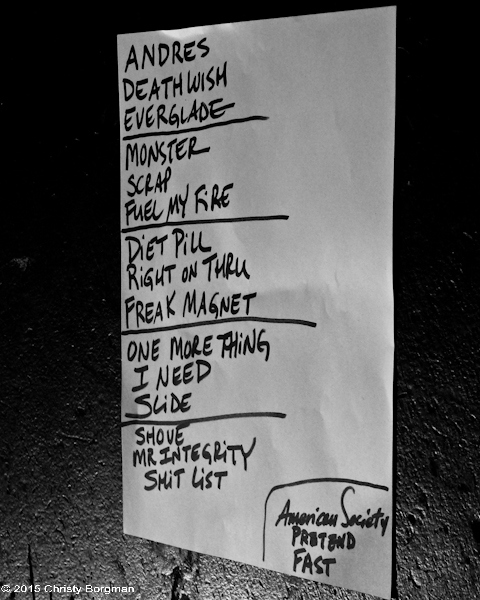 ANDRES
DEATHWISH
EVERGLADE
MONSTER
SCRAP
FUEL MY FIRE
DIET PILL
RIGHT ON THRU
FREAK MAGNET
ONE MORE THING
I NEED
SLIDE
SHOVE
MR. INTEGRITY
SHIT LIST
American Society
PRETEND
FAST
© 2015 Christy Borgman